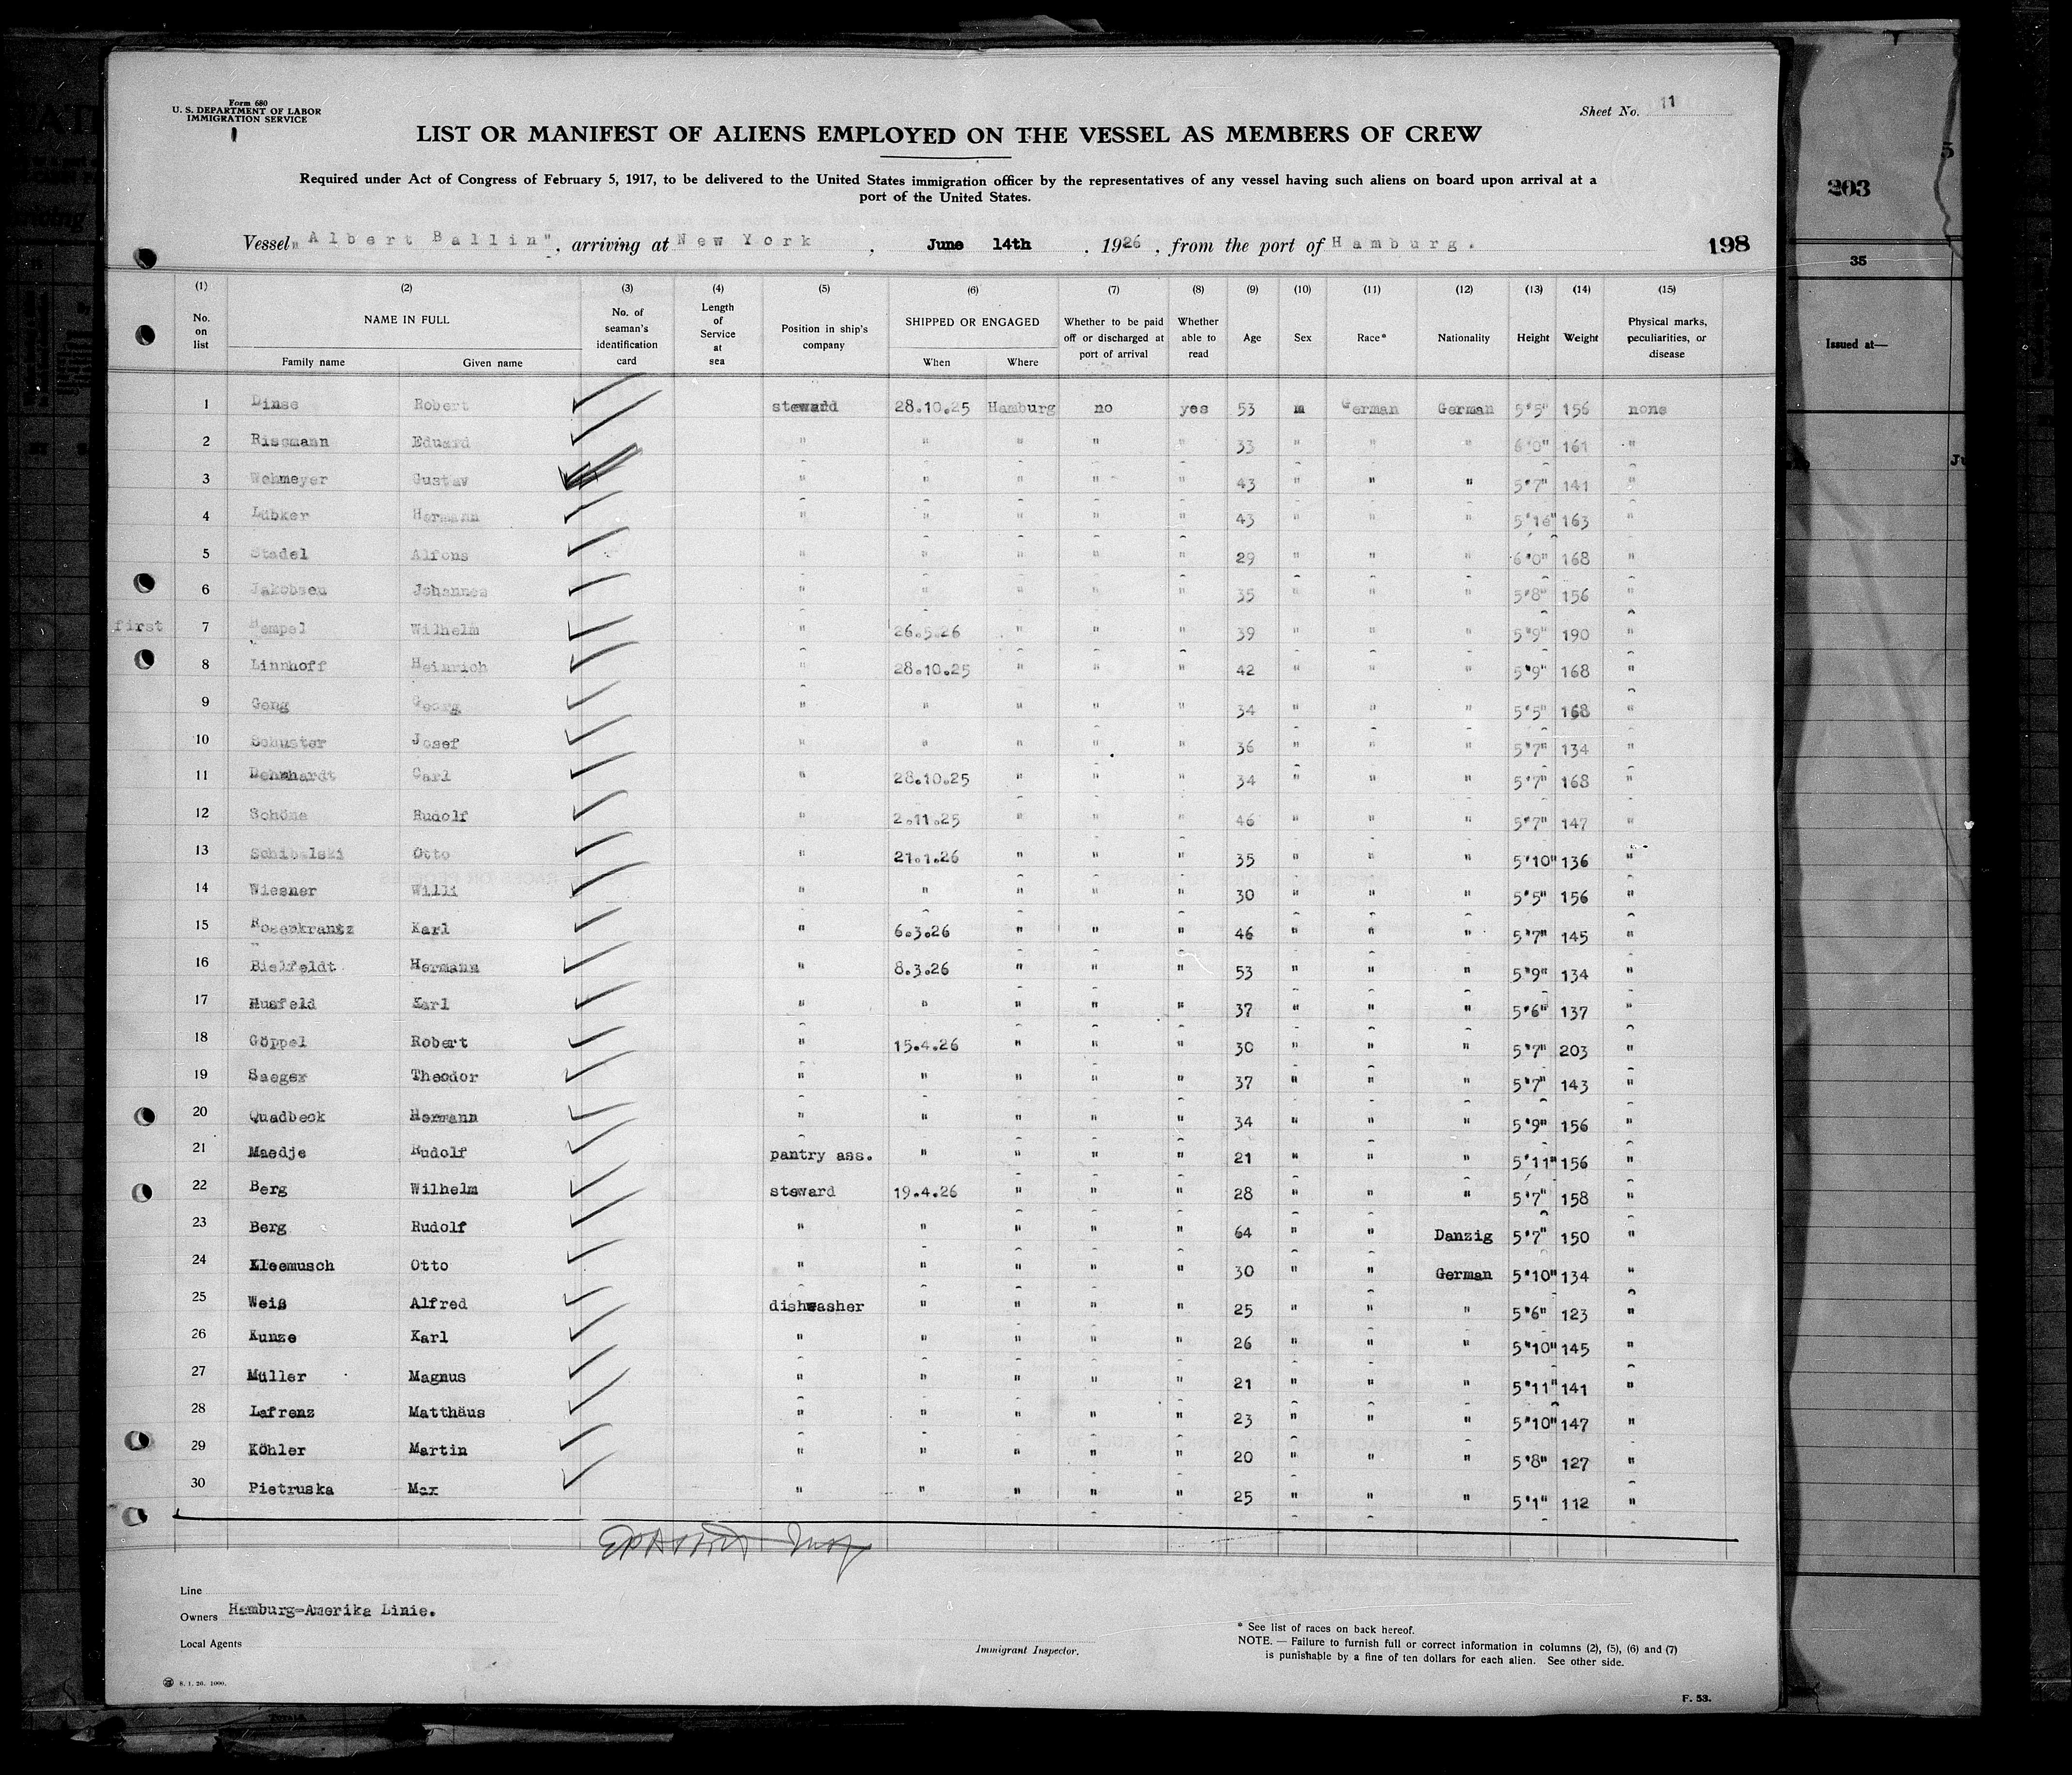 Form 680
U. S. DEPARTMENT OF LABOR
IMMIGRATION SERVICE
Sheet No. 11
LIST OR MANIFEST OF ALIENS EMPLOYED ON THE VESSEL AS MEMBERS OF CREW
Required under Act of Congress of February 5, 1917, to be delivered to the United States immigration officer by the representatives of any vessel having such aliens on board upon arrival at a
port of the United States.
Vessel „Albert Ballin", arriving at New York, June 14th, 1926, from the port of Hamburg. 198
(1) (2) (3) (4) (5) (6) (7) (8) (9) (10) (11) (12) (13) (14) (15)
No. on list NAME IN FULL Family name Given name No. of seaman's identification card Length of Service at sea Position in ship's company SHIPPED OR ENGAGED When Where Whether to be paid off or discharged at port of arrival Whether able to read Age Sex Race* Nationality Height Weight Physical marks, peculiarities, or disease
1 Dinse Robert steward 28.10.25 Hamburg no yes 53 m German German 5'5" 156 none
2 Rissmann Eduard " " " " " 33 " " " 6'0" 161 "
3 Wehmeyer Gustav " " " " " 43 " " " 5'7" 141 "
4 Lübker Hermann " " " " " 43 " " " 163 "
5 Stadel Alfons " " " " " 29 " " " 6'0" 168 "
6 Jakobsen Johannes " " " " " 35 " " " 5'8" 156 "
first 7 Hempel Wilhelm " 26.5.26 " " " 39 " " " 5'9" 190 "
8 Linnhoff Heinrich " 28.10.25 " " " 42 " " " 5'9" 168 "
9 Geng Georg " " " " " 34 " " " 5'5" 168 "
10 Schuster Josef " " " " " 36 " " " 5'7" 134 "
11 Dehnhardt Carl " 28.10.25 " " " 34 " " " 5'7" 168 "
12 Schöne Rudolf " 2.11.25 " " " 46 " " " 5'7" 147 "
13 Schibalski Otto " 21.1.26 " " " 35 " " " 5'10" 136 "
14 Wiesner Willi " " " " " 30 " " " 5'5" 156 "
15 Rosenkrantz Karl " 6.3.26 " " " 46 " " " 5'7" 145 "
16 Bielfeldt Hermann " 8.3.26 " " " 53 " " " 5'9" 134 "
17 Husfeld Karl " " " " " 37 " " " 5'6" 137 "
18 Göppel Robert " 15.4.26 " " " 30 " " " 5'7" 203 "
19 Saeger Theodor " " " " " 37 " " " 5'7" 143 "
20 Quadbeck Hermann " " " " " 34 " " " 5'9" 156 "
21 Maedje Rudolf pantry ass. " " " " 21 " " " 5'11" 156 "
22 Berg Wilhelm steward 19.4.26 " " " 28 " " " 5'7" 158 "
23 Berg Rudolf " " " " " 64 " " Danzig 5'7" 150 "
24 Kleemusch Otto " " " " " 30 " " German 5'10" 134 "
25 Weiß Alfred dishwasher " " " " 25 " " " 5'6" 123 "
26 Kunze Karl " " " " " 26 " " " 5'10" 145 "
27 Müller Magnus " " " " " 21 " " " 5'11" 141 "
28 Lafrenz Matthäus " " " " " 23 " " " 5'10" 147 "
29 Köhler Martin " " " " " 20 " " " 5'8" 127 "
30 Pietruska Max " " " " " 25 " " " 5'1" 112 "
Line
Owners Hamburg-Amerika Linie.
Local Agents
Immigrant Inspector.
* See list of races on back hereof.
NOTE. — Failure to furnish full or correct information in columns (2), (5), (6) and (7)
is punishable by a fine of ten dollars for each alien. See other side.
8. 1. 26. 1000.
F. 53.
203
35
Issued at—